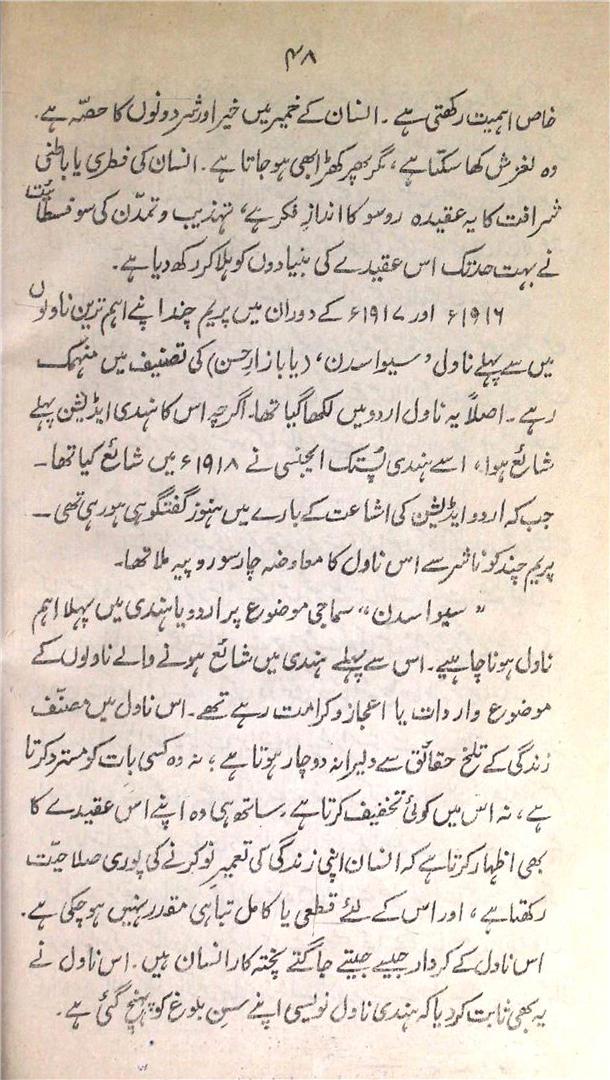 ۴۸
خاص اہمیت رکھتی ہے۔ انسان کے خمیر میں خیر اور شر دونوں کا حصّہ ہے۔
وہ لغزش کھا سکتا ہے، مگر پھر کھڑا بھی ہو جاتا ہے۔ انسان کی فطری یا باطنی
شرافت کا یہ عقیدہ روسو کا اندازِ فکر ہے، تہذیب و تمدّن کی سوفسطائیت
نے بہت حد تک اس عقیدے کی بنیادوں کو ہلا کر رکھ دیا ہے۔
۱۹۱۶ء اور ۱۹۱۷ء کے دوران میں پریم چند اپنے اہم ترین ناولوں
میں سے پہلے ناول ’سیوا سدن‘ (یا بازارِ حسن) کی تصنیف میں منہمک
رہے۔ اصلاً یہ ناول اردو میں لکھا گیا تھا۔ اگرچہ اس کا ہندی ایڈیشن پہلے
شائع ہوا، اسے ہندی پُستک ایجنسی نے ۱۹۱۸ء میں شائع کیا تھا۔
جب کہ اردو ایڈیشن کی اشاعت کے بارے میں ہنوز گفتگو ہی ہو رہی تھی۔
پریم چند کو ناشر سے اس ناول کا معاوضہ چار سو روپیہ ملا تھا۔
”سیوا سدن“ سماجی موضوع پر اردو یا ہندی میں پہلا اہم
ناول ہونا چاہیے۔ اس سے پہلے ہندی میں شائع ہونے والے ناولوں کے
موضوع واردات یا اعجاز و کرامت رہے تھے۔ اس ناول میں مصنّف
زندگی کے تلخ حقائق سے دلیرانہ دوچار ہوتا ہے، نہ وہ کسی بات کو مسترد کرتا
ہے، نہ اس میں کوئی تخفیف کرتا ہے۔ ساتھ ہی وہ اپنے اس عقیدے کا
بھی اظہار کرتا ہے کہ انسان اپنی زندگی کی تعمیرِ نو کرنے کی پوری صلاحیّت
رکھتا ہے، اور اس کے لئے قطعی یا کامل تباہی مقدر نہیں ہو چکی ہے۔
اس ناول کے کردار جیسے جیتے جاگتے پختہ کار انسان ہیں۔ اس ناول نے
یہ بھی ثابت کر دیا کہ ہندی ناول نویسی اپنے سنِ بلوغ کو پہنچ گئی ہے۔